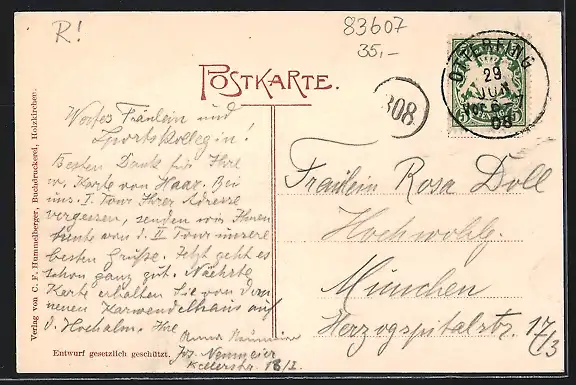 R!
83607
35,-
POSTKARTE.
OTTERFING
29
JUN
08
308
Wertes Fräulein und
Sportskollegin!
Besten Dank für Ihre
w. Karte von Haar. Bei
uns. I. Tour Ihrer Adresse
vergessen, senden wir Ihnen
heute von d. II Tour unsere
besten Grüße. Jetzt geht es
schon ganz gut. Nächste
Karte erhalten Sie von dem
neuen Karwendelhaus auf
d. Hochalm. Ihre
Anna Neumeier
Jos. Neumeier
Kellerstr. 18/I.
Fräulein Rosa Doll
Hochwohlg.
München
Herzogspitalstr. 17/3
Verlag von C. F. Hummelberger, Buchdruckerei, Holzkirchen.
Entwurf gesetzlich geschützt.